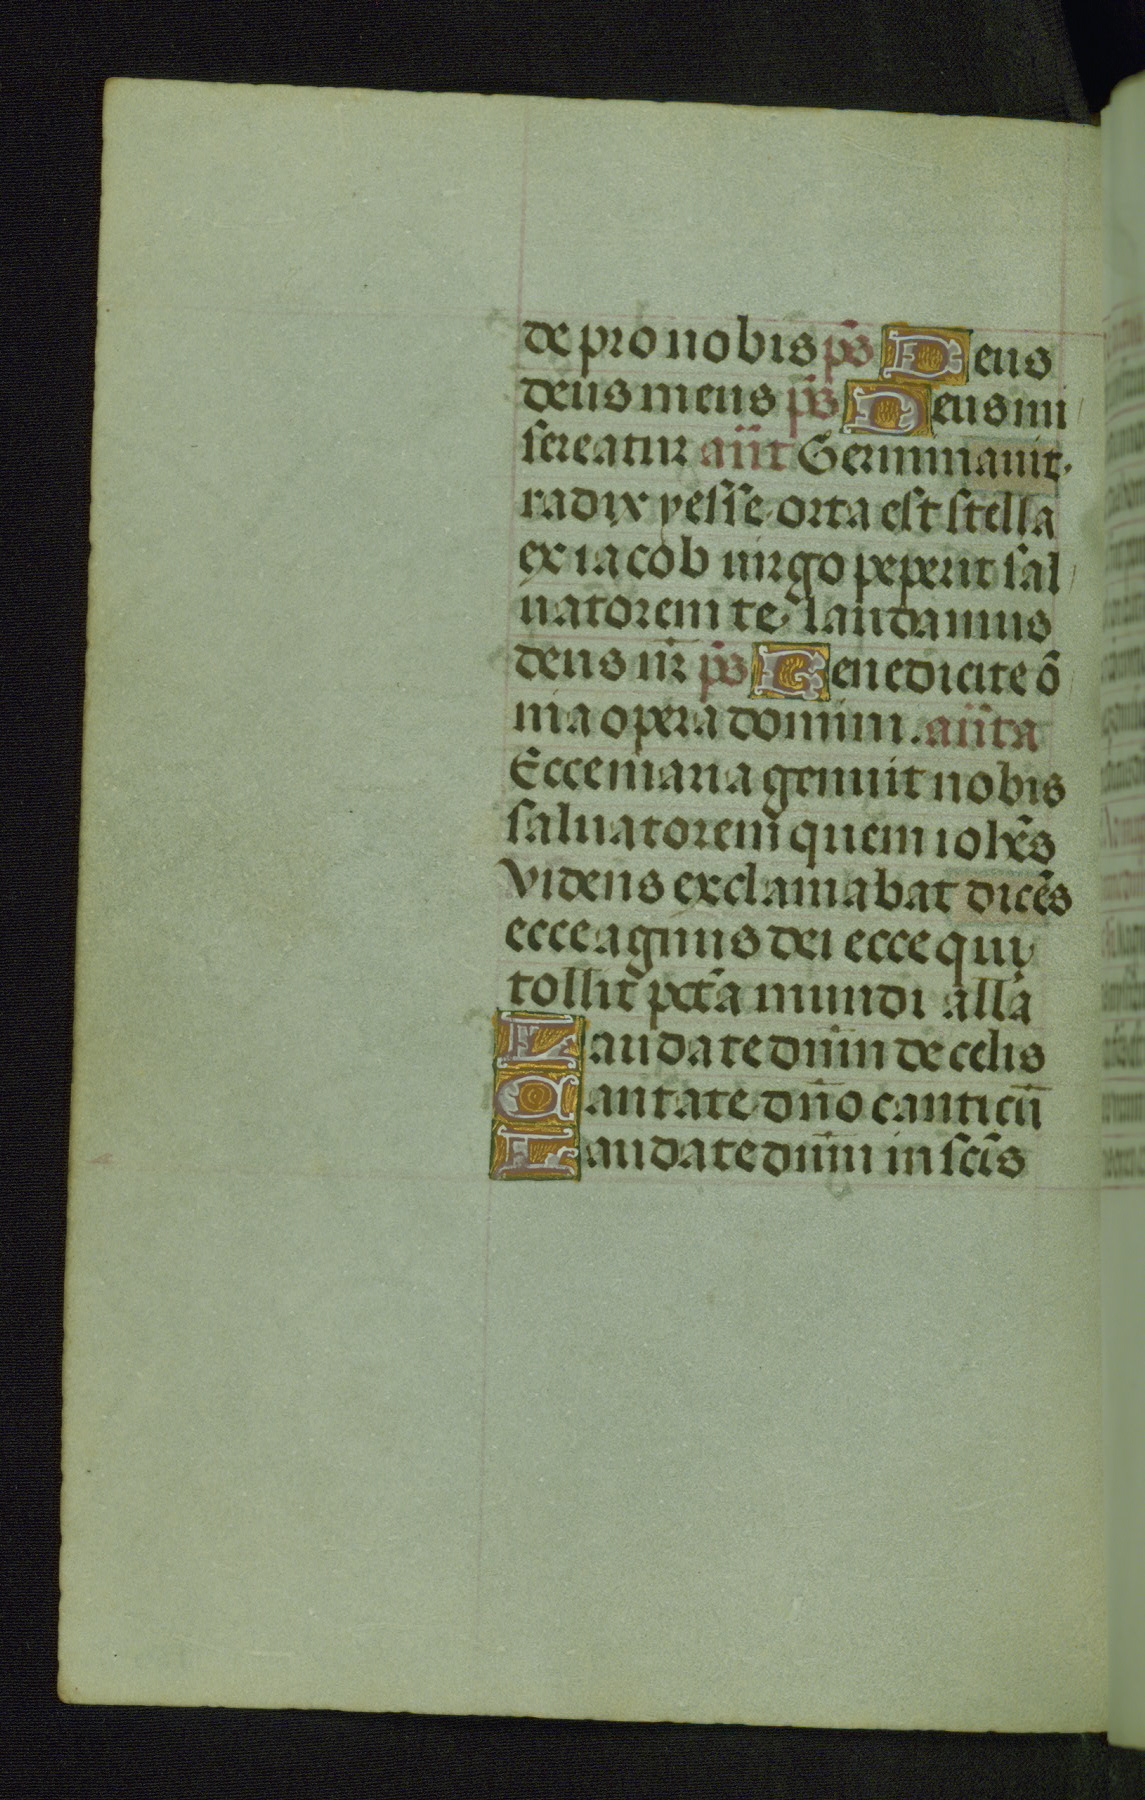 de pro nobis ps̄ Deus
deus meus ps̄ Deus mi
sereatur an̄t Germinauit
radix yesse orta est stella
ex iacob uirgo peperit sal
uatorem te laudamus
deus nr̄ ps̄ Benedicite ō
nia opera domini. an̄ta
Ecce maria genuit nobis
saluatorem quem ioħes
videns exclamabat dicēs
ecce agnus dei ecce qui
tollit pctā mundi alla
Laudate dnm̄ de celis
Cantate dn̄o canticū
Laudate dnm̄ in scīs